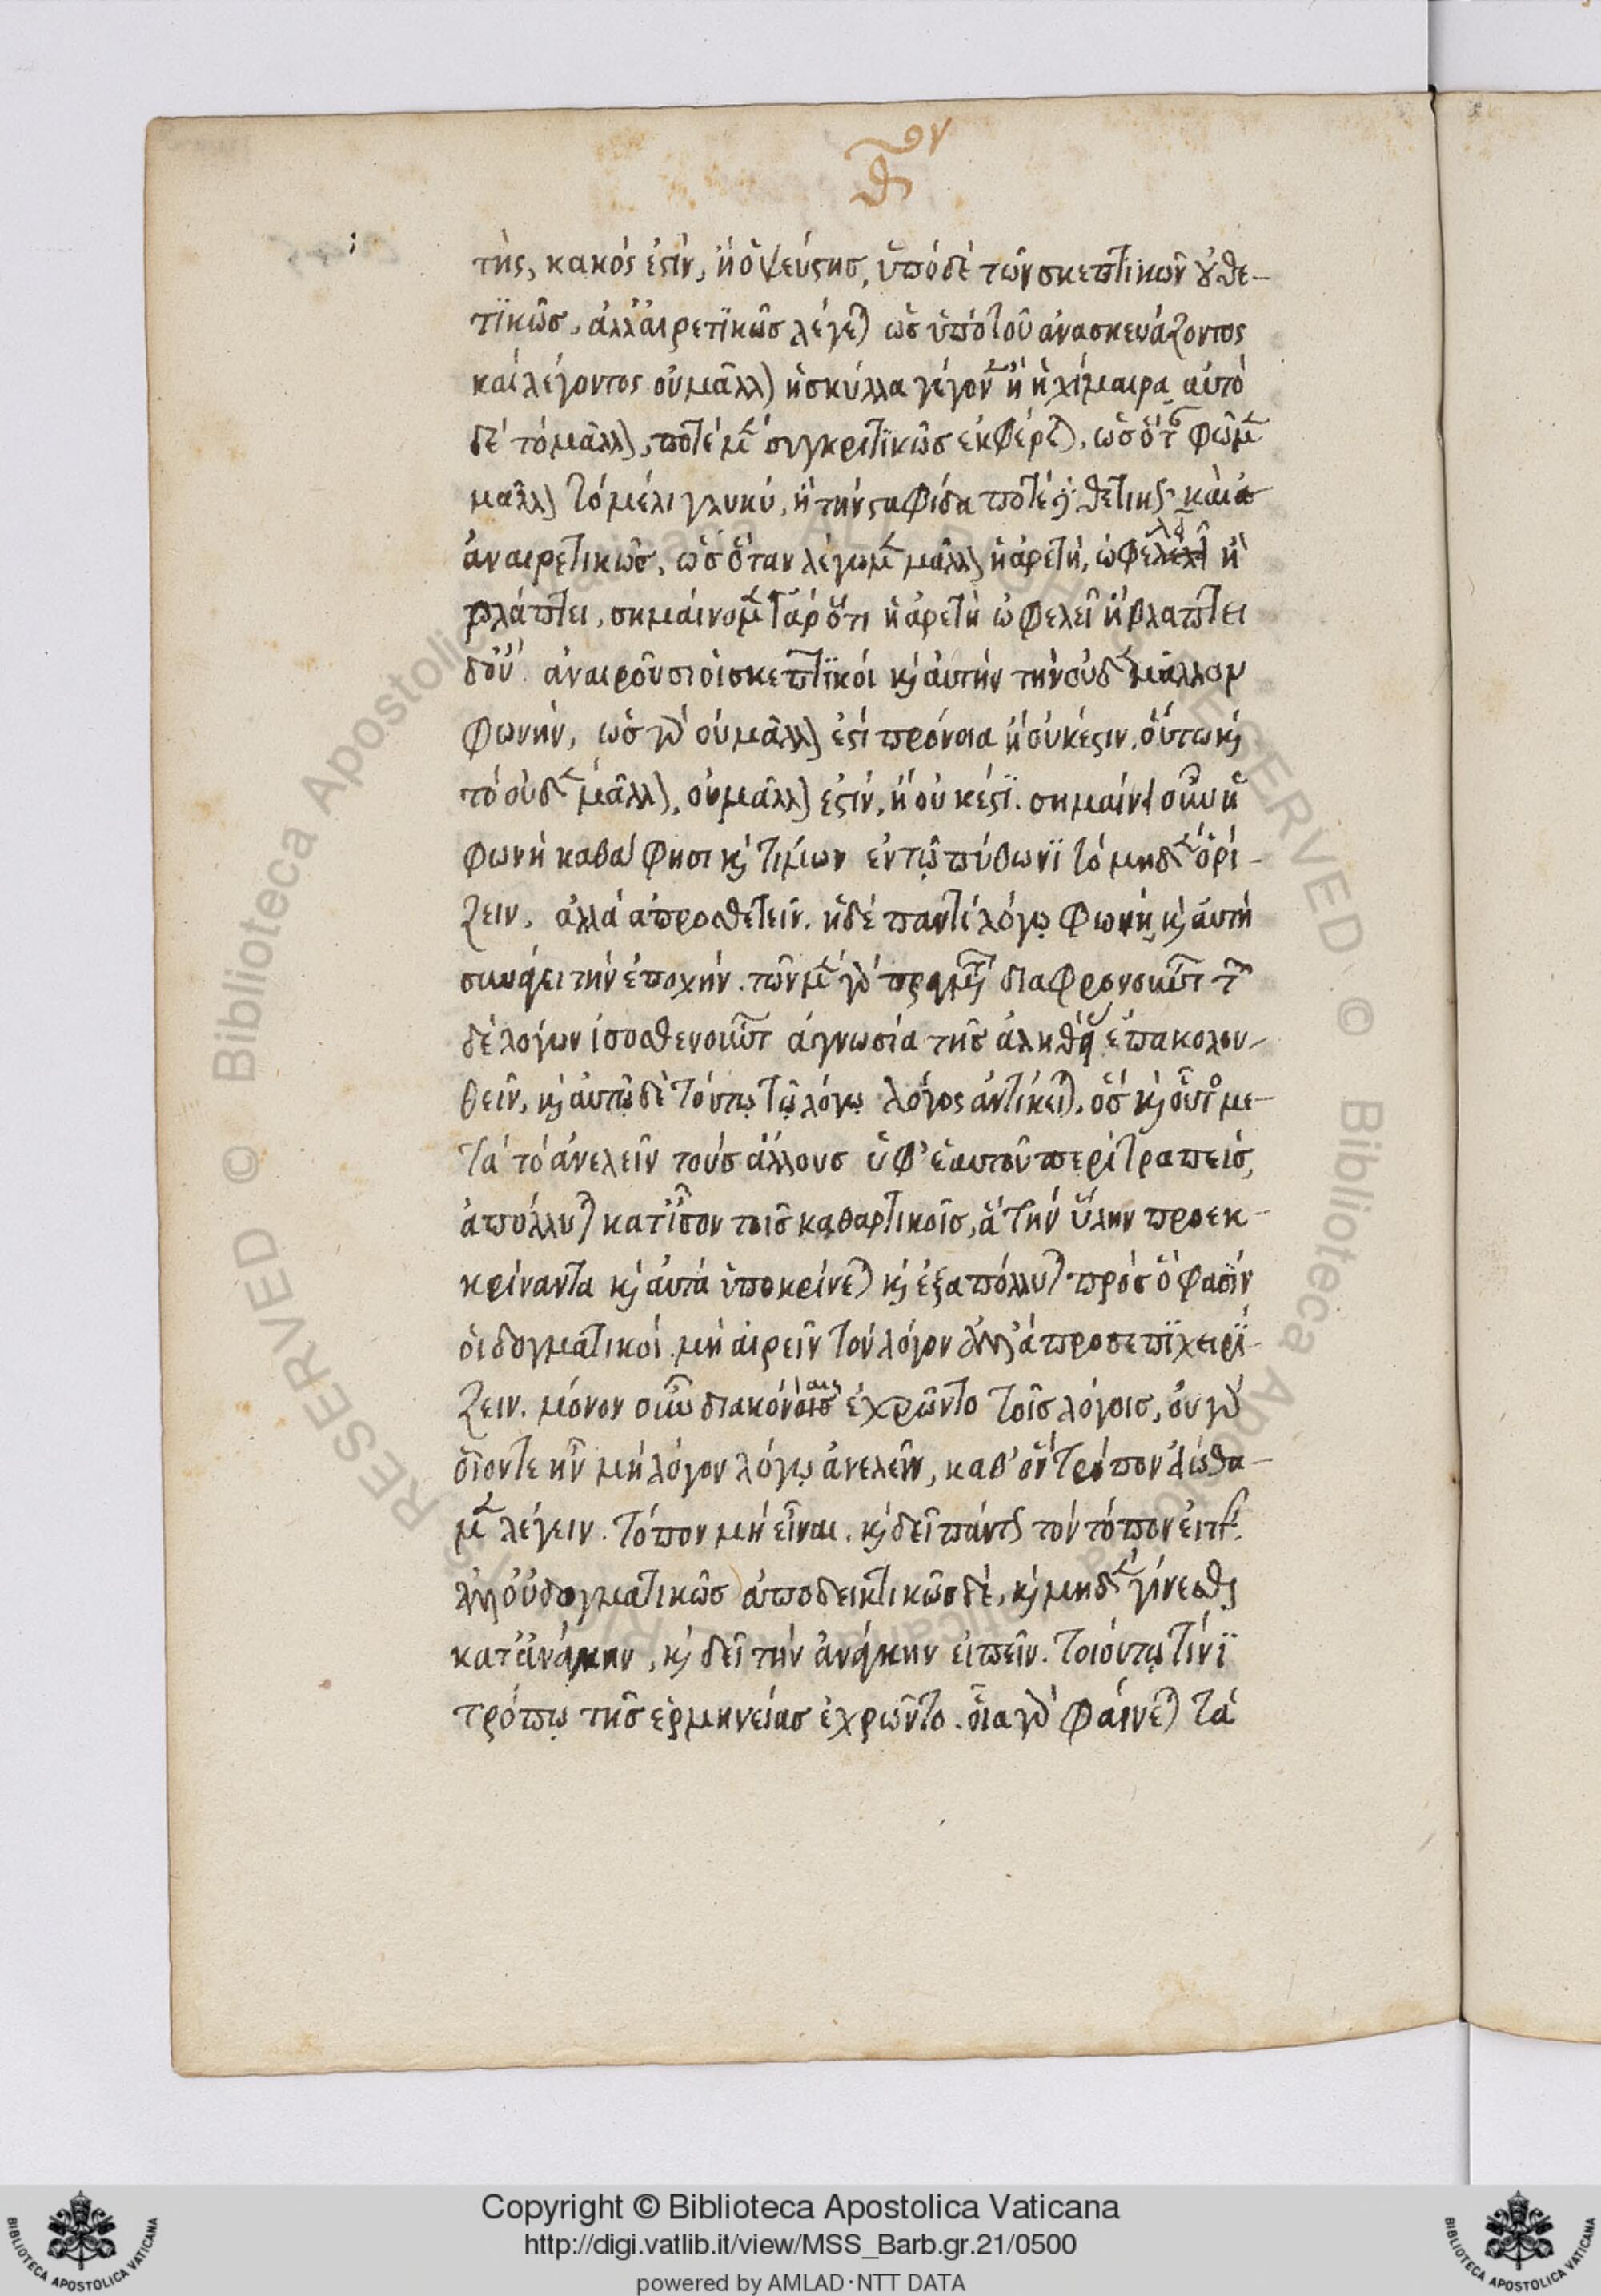 θον
τὴς, κακός ἐστίν, ἢ ὁ ψεύστης, ὑπὸ δὲ τῶν σκεπτικῶν οὐ θε-
τϊκῶς, ἀλλ' ἀιρετϊκῶς λέγεται ὡς ὑπὸ τοῦ ἀνασκευάζοντος
καὶ λέγοντος οὐ μᾶλλον ἡ σκύλλα γέγονεν ἢ ἡ χίμαιρα, αὐτὸ
δὲ τὸ μᾶλλον, ποτὲ μὲν συγκριτϊκῶς ἐκφέρεται, ὡς ὅταν φῶμεν
μᾶλλον τὸ μέλι γλυκύ, ἢ τὴν σταφίδα ποτὲ δὲ θετικῶς καὶ ἀ
ἀναιρετικῶς, ὡς ὅταν λέγωμεν μᾶλλον ἡ ἀρετὴ, ὠφελεῖ ἢ
βλάπτει, σημαίνομεν γὰρ ὅτι ἡ ἀρετὴ ὠφελεῖ ἢ βλαπτει
δοὔ. ἀναιροῦσι οἱ σκεπτϊκοί καὶ αὐτὴν τὴν οὐδὲν μᾶλλον
φωνὴν, ὡς γὰρ οὐ μᾶλλον ἐστί πρόνοια ἢ οὐκ ἔστιν, οὕτω καὶ
τὸ οὐδὲν μᾶλλον, οὐ μᾶλλον ἐστίν, ἢ οὐκ ἔστϊ. σημαίνει οὖν ἡ
φωνὴ καθά φησι καὶ τίμων ἐν τῷ πύθωνϊ τὸ μηδὲν ὁρί-
ζειν, ἀλλὰ ἀπροσθετεῖν. ἡ δὲ παντὶ λόγῳ φωνὴ, καὶ αὐτὴ
συνάγει τὴν ἐποχήν. τῶν μὲν γὰρ πραγμάτων διαφρονούντων τῶν
δὲ λόγων ἰσοσθενούντων ἀγνωσία τῆς ἀληθείας ἐπακολου-
θεῖν, καὶ αὐτῷ δὲ τούτῳ τῷ λόγῳ λόγος ἀντίκειται, ὃς καὶ οὗτος με-
τὰ τὸ ἀνελεῖν τοὺς ἄλλους ὑφ' ἑαυτοῦ περιτραπείς,
ἀπόλλυται κατ' ἶσον τοῖς καθαρτικοῖς, ἃ τὴν ὕλην προεκ-
κρίναντα καὶ αὐτὰ ὑποκρίνεται καὶ ἐξαπόλλυται πρὸς ὅ φασϊν
οἱ δογματικοὶ μὴ αἱρεῖν τὸν λόγον ἀλλὰ προσεπϊχειρϊ-
ζειν. μόνον οὖν διακόνοις ἐχρῶντο τοῖς λόγοις, οὐ γὰρ
οἷον τε ἦν μὴ λόγον λόγῳ ἀνελεῖν, καθ' ὃν τρόπον εἰώθα-
μεν λέγειν. τόπον μὴ εἶναι. καὶ δεῖ πάντως τὸν τόπον εἰπεῖν.
ἀλλ' οὐ δογματικῶς ἀποδεικτικῶς δὲ, καὶ μηδὲν γίνεσθαι
κατ' ἀνάγκην, καὶ δεῖ τὴν ἀνάγκην εἰπεῖν. τοιούτῳ τϊνϊ
τρόπῳ τῆς ἑρμηνείας ἐχρῶντο. οἷα γὰρ φαίνεται τὰ
Copyright © Biblioteca Apostolica Vaticana
http://digi.vatlib.it/view/MSS_Barb.gr.21/0500
powered by AMLAD·NTT DATA